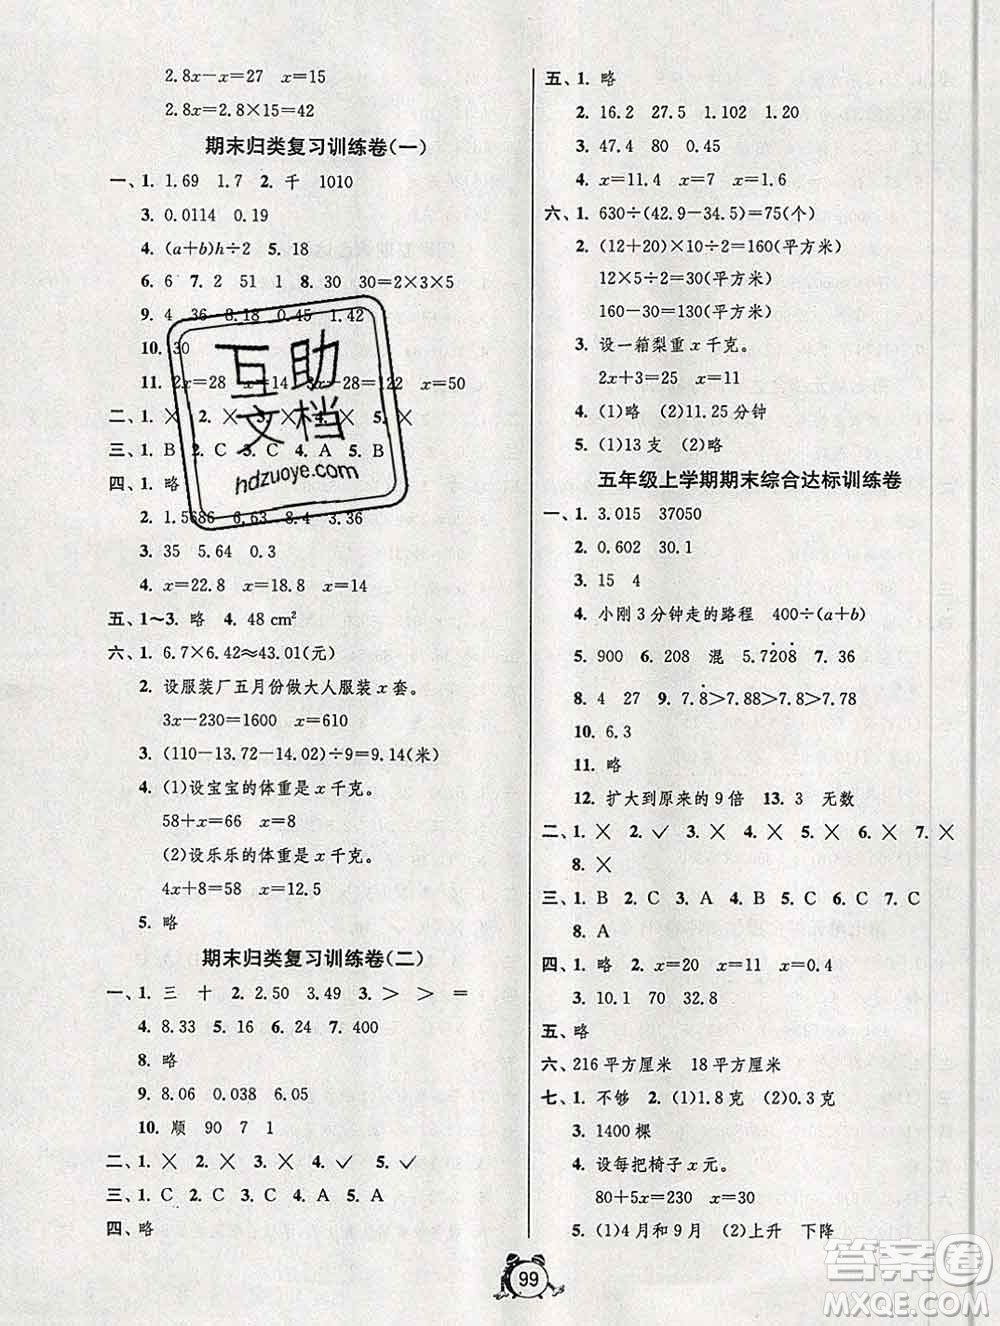 2.8x－x＝27　x＝15
2.8x＝2.8×15＝42
期末归类复习训练卷(一)
一、1. 1.69　1.7　2. 千　1010
3. 0.0114　0.19
4. (a＋b)h÷2　5. 18
6. 6　7. 2　51　1　8. 30　30＝2×3×5
9. 4　36　8.18　0.45　1.42
10. 30
11. 2x＝28　x＝14　3x－28＝122　x＝50
二、1. ╳　2. ╳　3. ╳　4. ╳　5. ╳
三、1. B　2. C　3. C　4. A　5. B
四、1. 略
2. 1.5686　6.63　8.4　3.36
3. 35　5.64　0.3
4. x＝22.8　x＝18.8　x＝14
五、1~3. 略　4. 48 cm²
六、1. 6.7×6.42≈43.01(元)
2. 设服装厂五月份做大人服装 x 套。
3x－230＝1600　x＝610
3. (110－13.72－14.02)÷9＝9.14(米)
4. (1)设宝宝的体重是 x 千克。
58＋x＝66　x＝8
(2)设乐乐的体重是 x 千克。
4x＋8＝58　x＝12.5
5. 略
期末归类复习训练卷(二)
一、1. 三　十　2. 2.50　3.49　3. ＞　＞　＝
4. 8.33　5. 16　6. 24　7. 400
8. 略
9. 8.06　0.038　6.05
10. 顺　90　7　1
二、1. ╳　2. ╳　3. ╳　4. ✓　5. ✓
三、1. C　2. C　3. C　4. A　5. A
四、略
五、1. 略
2. 16.2　27.5　1.102　1.20
3. 47.4　80　0.45
4. x＝11.4　x＝7　x＝1.6
六、1. 630÷(42.9－34.5)＝75(个)
2. (12＋20)×10÷2＝160(平方米)
12×5÷2＝30(平方米)
160－30＝130(平方米)
3. 设一箱梨重 x 千克。
2x＋3＝25　x＝11
4. (1)略　(2)11.25 分钟
5. (1)13 支　(2)略
五年级上学期期末综合达标训练卷
一、1. 3.015　37050
2. 0.602　30.1
3. 15　4
4. 小刚 3 分钟走的路程　400÷(a＋b)
5. 900　6. 208　混　5.7̇208̇　7. 36
8. 4　27　9. 7.8̇＞7.88＞7.8＞7.78
10. 6.3
11. 略
12. 扩大到原来的 9 倍　13. 3　无数
二、1. ╳　2. ✓　3. ╳　4. ╳　5. ╳　6. ╳　7. ╳
8. ╳
三、1. B　2. C　3. A　4. B　5. C　6. C　7. C
8. A
四、1. 略　2. x＝20　x＝11　x＝0.4
3. 10.1　70　32.8
五、略
六、216 平方厘米　18 平方厘米
七、1. 不够　2. (1)1.8 克　(2)0.3 克
3. 1400 棵
4. 设每把椅子 x 元。
80＋5x＝230　x＝30
5. (1)4 月和 9 月　(2)上升　下降
99
互助
文档
hdzuoye.com
答案圈
MXQE.COM